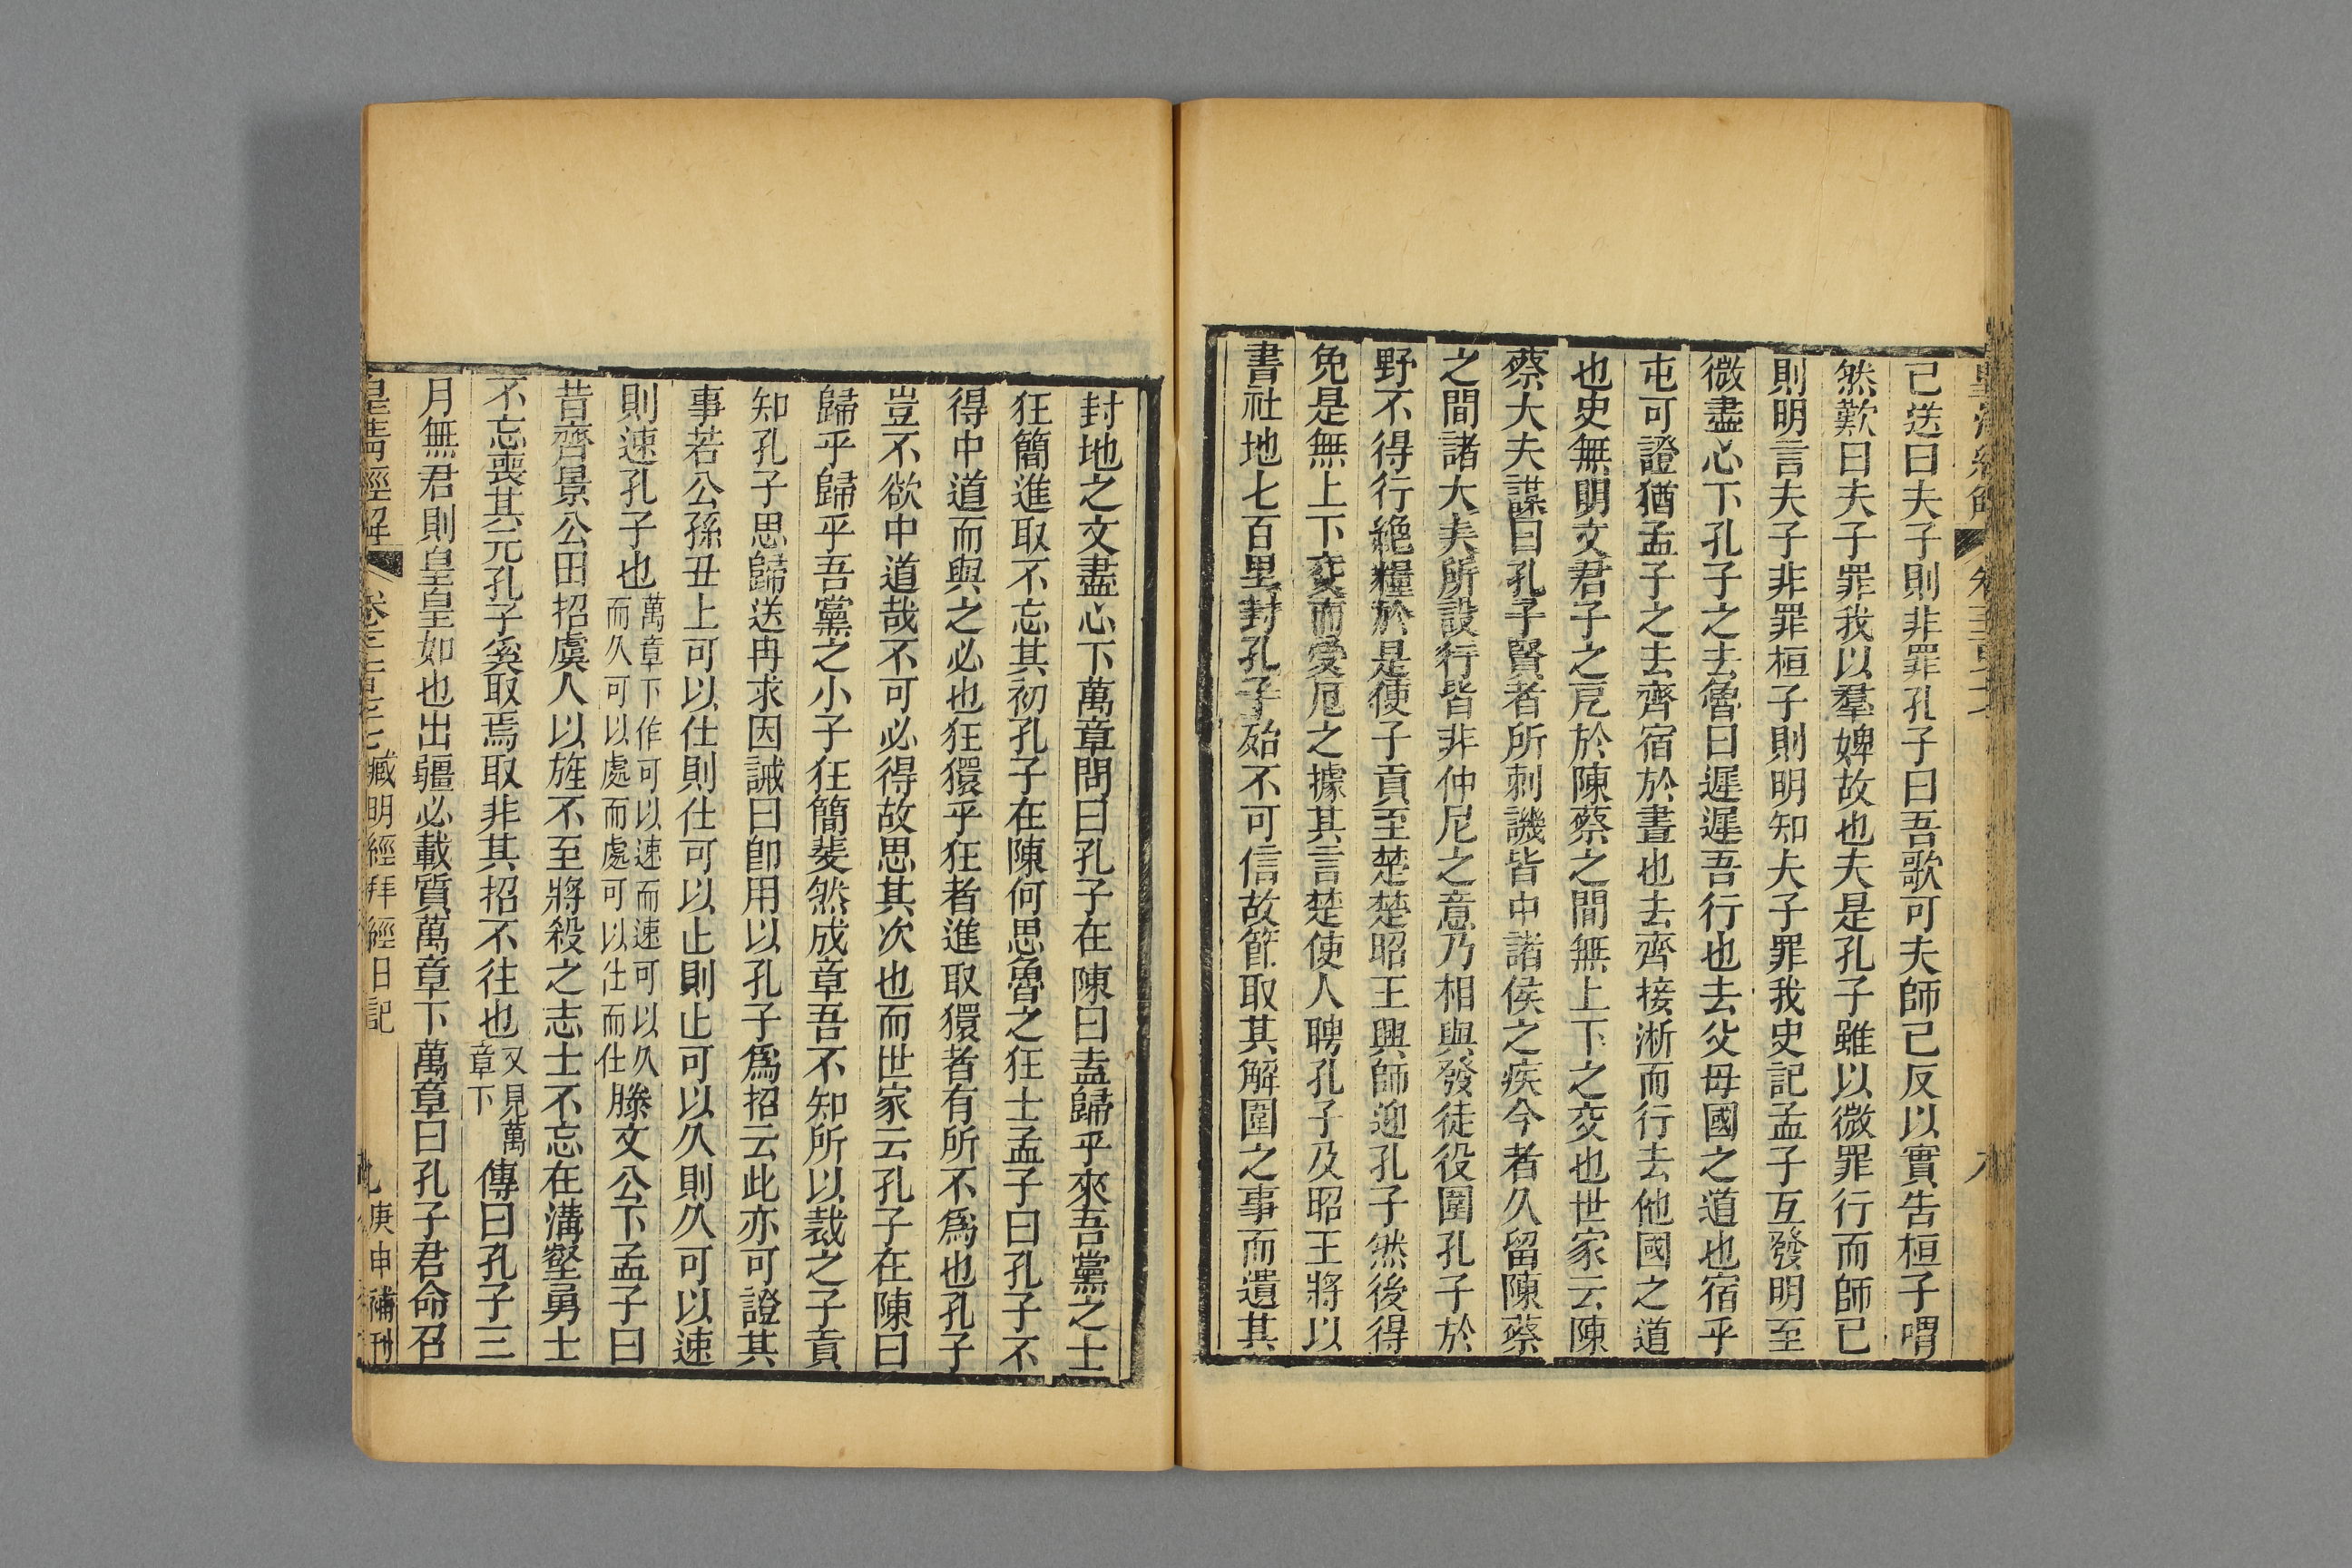 己送曰夫子則非罪孔子曰吾歌可夫師己反以實告桓子喟
然歎曰夫子罪我以羣婢故也夫是孔子雖以微罪行而師己
則明言夫子非罪桓子則明知夫子罪我史記孟子互發明至
微盡心下孔子之去魯曰遲遲吾行也去父母國之道也宿乎
屯可證猶孟子之去齊宿於晝也去齊接淅而行去他國之道
也史無明文君子之戹於陳蔡之間無上下之交也世家云陳
蔡大夫謀曰孔子賢者所刺譏皆中諸侯之疾今者久留陳蔡
之間諸大夫所設行皆非仲尼之意乃相與發徒役圍孔子於
野不得行絶糧於是使子貢至楚楚昭王興師迎孔子然後得
免是無上下交而受厄之據其言楚使人聘孔子及昭王將以
書社地七百里封孔子殆不可信故節取其解圍之事而遺其
封地之文盡心下萬章問曰孔子在陳曰盍歸乎來吾黨之士
狂簡進取不忘其初孔子在陳何思魯之狂士孟子曰孔子不
得中道而與之必也狂獧乎狂者進取獧者有所不爲也孔子
豈不欲中道哉不可必得故思其次也而世家云孔子在陳曰
歸乎歸乎吾黨之小子狂簡斐然成章吾不知所以裁之子貢
知孔子思歸送冉求因誡曰卽用以孔子爲招云此亦可證其
事若公孫丑上可以仕則仕可以止則止可以久則久可以速
則速孔子也萬章下作可以速而速可以久而久可以處而處可以仕而仕滕文公下孟子曰
昔齊景公田招虞人以旌不至將殺之志士不忘在溝壑勇士
不忘喪其元孔子奚取焉取非其招不往也又見萬章下傳曰孔子三
月無君則皇皇如也出疆必載質萬章下萬章曰孔子君命召
皇清經解 臧明經拜經日記 九 庚申補刊